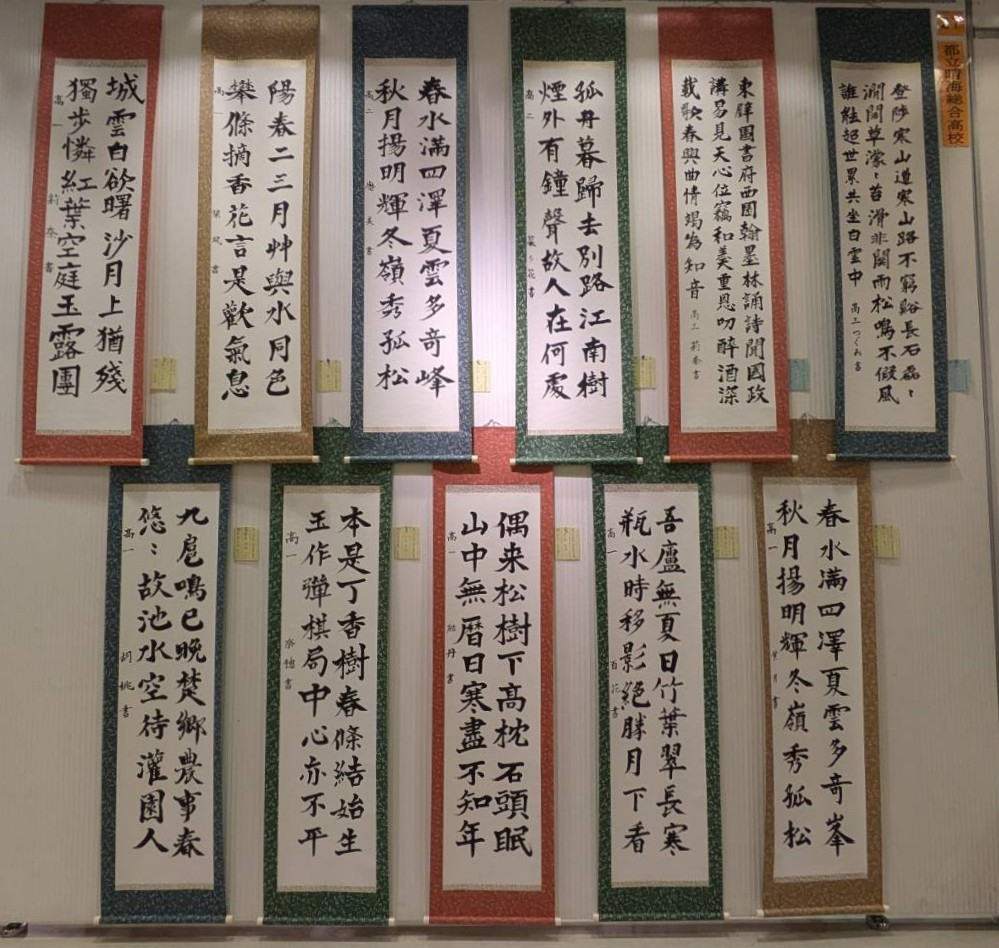 都立晴海総合高校
登陟寒山道寒山路不窮谿長石磊〻
澗闊草濛〻苔滑非関雨松鳴不假風
誰能超世累共坐白雲中
高三つくれ書
東壁圖書府西園翰墨林誦詩聞國政
講易見天心位竊和羹重恩叨醉酒深
載歌春興曲情竭為知音
高三 莉奈書
孤舟暮歸去別路江南樹
煙外有鐘聲故人在何處
高二
春水満四澤夏雲多奇峰
秋月揚明輝冬嶺秀孤松
高二
陽春二三月艸與水同色
攀條摘香花言是歡氣息
高一
城雲白欲曙沙月上猶殘
獨步憐紅葉空庭玉露團
高一 莉奈書
春水満四澤夏雲多奇峯
秋月揚明輝冬嶺秀孤松
高一
吾廬無夏日竹葉翠長寒
瓶水時移影絕勝月下看
高一 百花書
偶来松樹下高枕石頭眠
山中無暦日寒盡不知年
高一
本是丁香樹春條結始生
玉作彈棋局中心亦不平
高一
九扈鳴已晚楚鄉農事春
悠〻故池水空待灌園人
高一 胡桃書